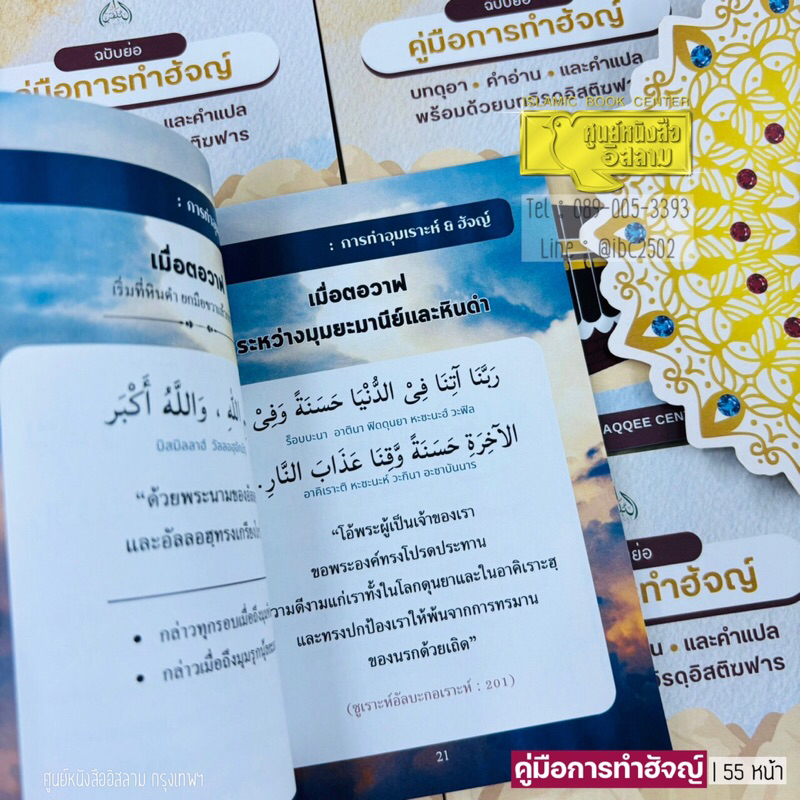 ฉบับย่อ
คู่มือการทำฮัจญ์
และคำแปล
ฉบับย่อ
คู่มือการทำฮัจญ์
บทดุอา • คำอ่าน • และคำแปล
ISLAMIC BOOK CENTER
ศูนย์หนังสือ
อิสลาม
Tel : 089-005-3393
Line : @ibc2502
เมื่อตอวาฟ
เริ่มที่หินดำ ยกมือขวา
، وَاللَّهُ أَكْبَر
บิสมิลลาฮ์
“ด้วยพระนามของ
และอัลลอฮฺทรงเกรียง
• กล่าวทุกรอบเมื่อถึงมุม
• กล่าวเมื่อถึงมุม
: การทำอุมเราะห์ & ฮัจญ์
เมื่อตอวาฟ
ระหว่างมุมยะมานีย์และหินดำ
رَبَّنَا آتِنَا فِيْ الدُّنْيَا حَسَنَةً وَفِيْ
ร็อบบะนา อาตินา ฟิดดุนยา หะซะนะฮ์ วะฟิล
الآخِرَةِ حَسَنَةً وَّقِنَا عَذَابَ النَّارِ.
อาคิเราะติ หะซะนะห์ วะกินา อะซาบันนาร
“โอ้พระผู้เป็นเจ้าของเรา
ขอพระองค์ทรงโปรดประทาน
ความดีงามแก่เราทั้งในโลกดุนยาและในอาคิเราะฮฺ
และทรงปกป้องเราให้พ้นจากการทรมาน
ของนรกด้วยเถิด”
(ซูเราะห์อัลบะกอเราะห์ : 201)
21
AQQEE CENT
ย่อ
ทำฮัจญ์
น • และคำแปล
ศูนย์หนังสืออิสลาม กรุงเทพฯ
คู่มือการทำฮัจญ์ | 55 หน้า